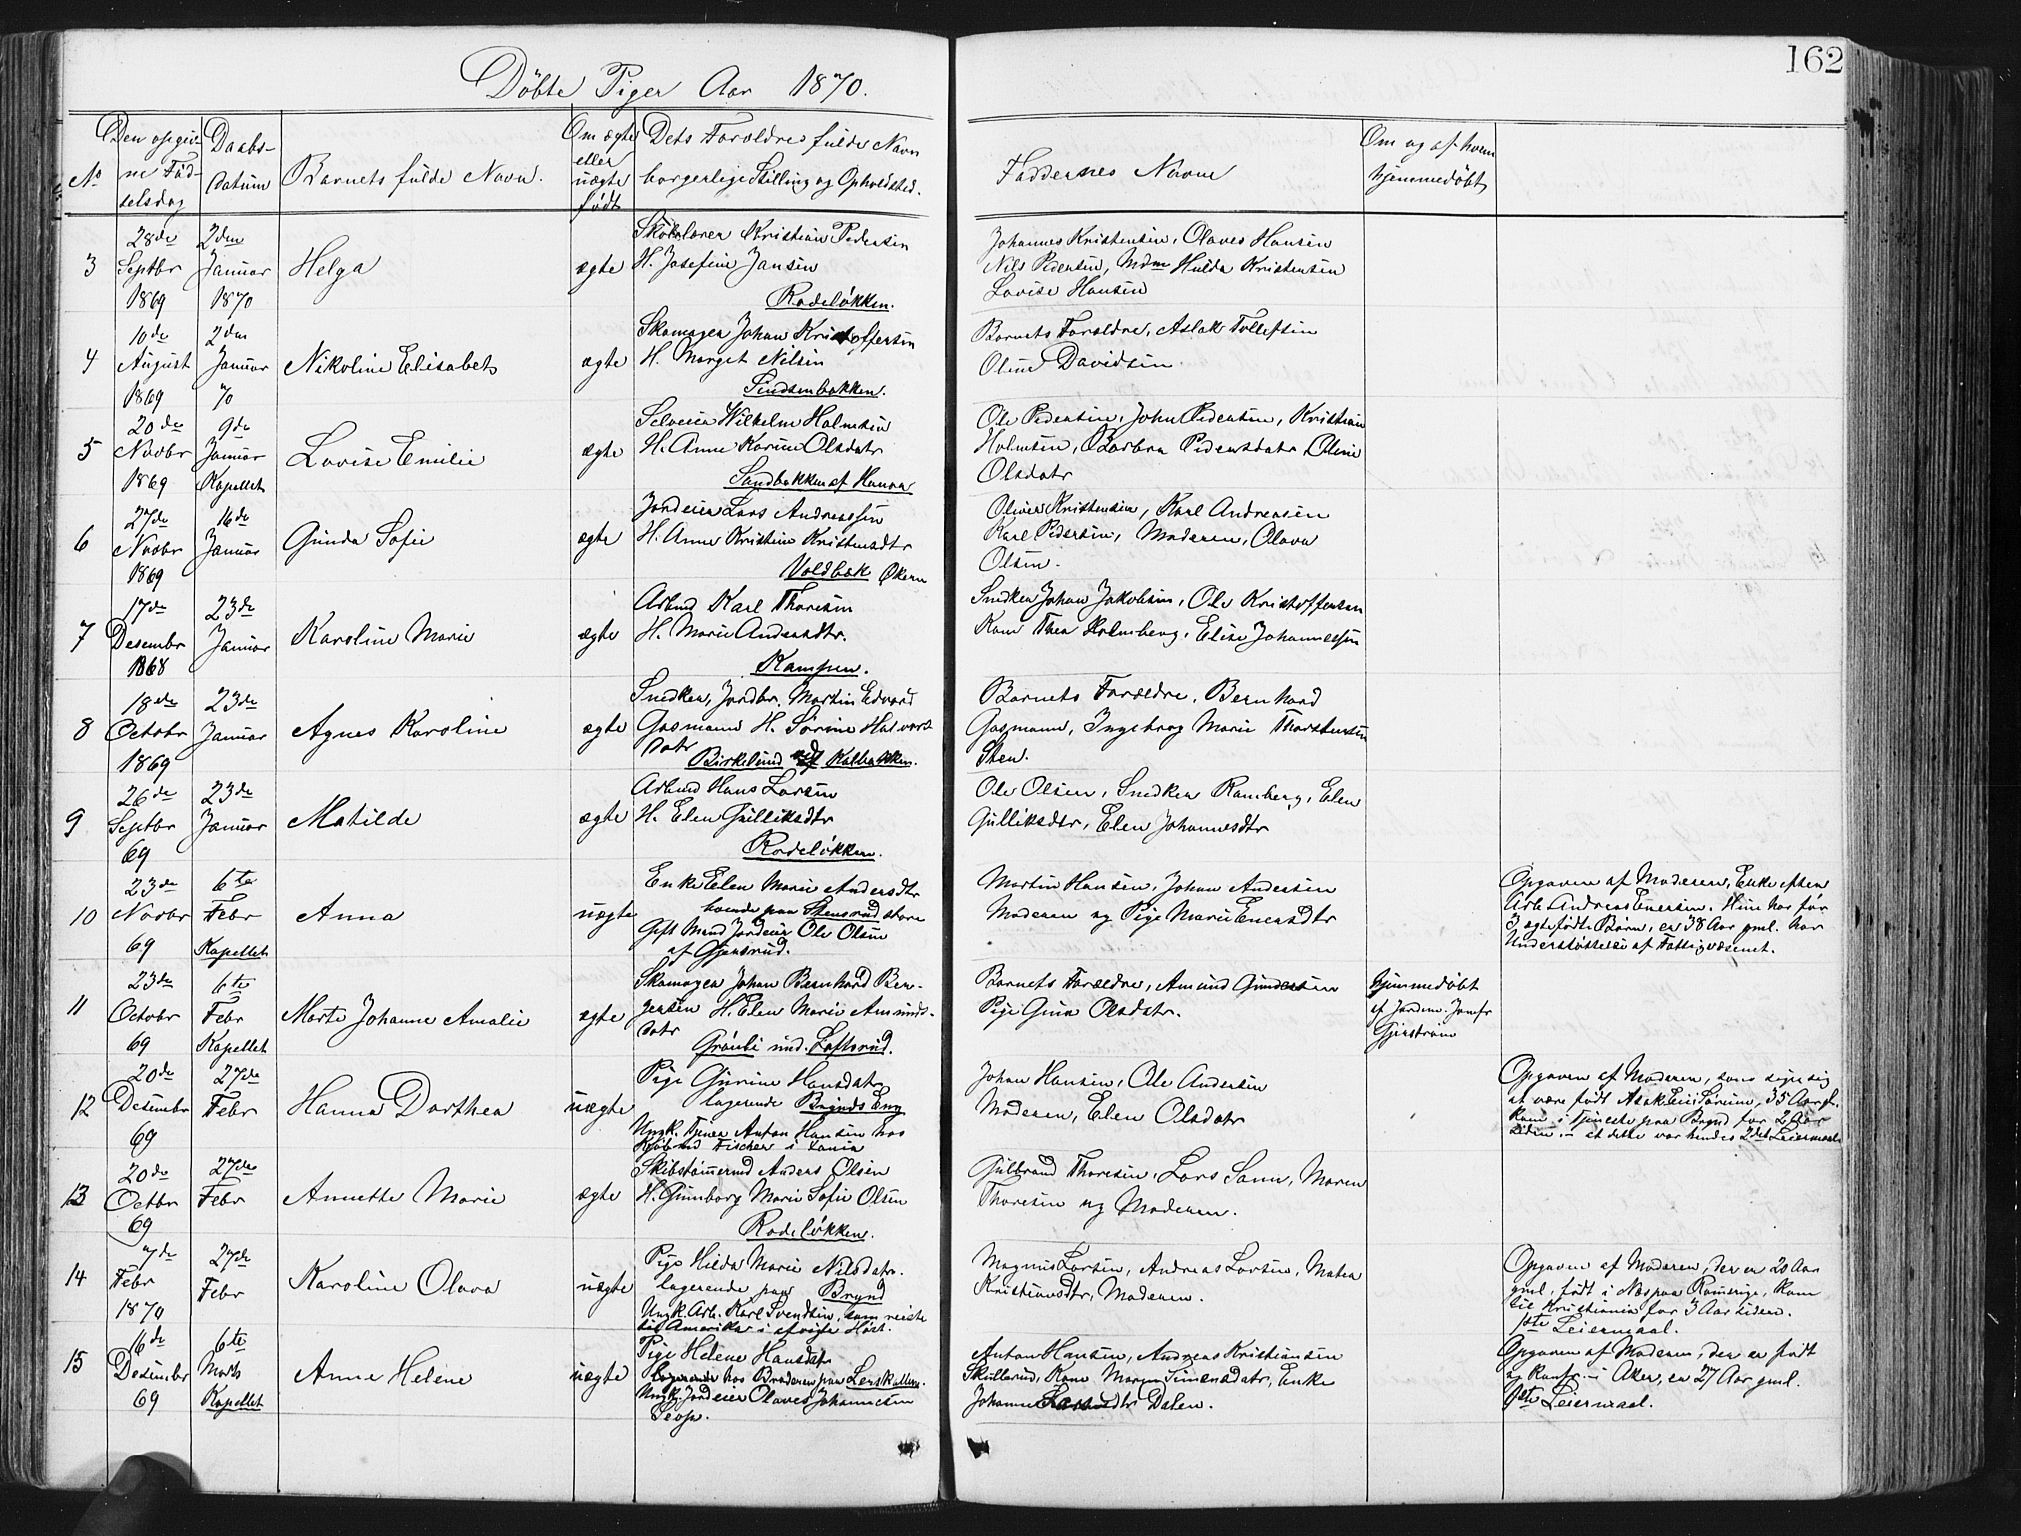 162
Døbte Piger Aar 1870.
No
Den opgivne Fødselsdag
Daabsdatum
Barnets fulde Navn.
Om ægte eller uægte født
Dets Forældres fulde Navn borgerlige Stilling og Opholdsted.
Faddernes Navne
Om og af hvem hjemmedøbt
3
28de Septbr 1869
2den Januar 1870
Helga
ægte
Kristian Pedersen
H. Josefine Jansen
Rodeløkken.
Johannes Kristensen, Olaves Hansen
Nils Pedersen, Mdm Hulda Kristensen
Lovise Hansen
4
10de August 1869
2den Januar 70
Nikoline Elisabet
ægte
Skomager Johan Kristoffersen
H. Marget Nilsen
Sindsenbakken.
Barnets Forældre, Aslak Tollefsen
Oline Davidsen.
5
20de Novbr 1869
9de Januar Kapellet
Lovise Emilie
ægte
Selveier Wilhelm Holmsen
H. Anne Karine Olsdatr
Sandbakken af
Ole Pedersen, John Pedersen, Kristian
Holmsen, Barbra Pedersdatr Oline
Olsdatr
6
27de Novbr 1869
16de Januar
Gunda Sofie
ægte
Jordeier Lars Andreassen
H. Anne Kristine Kristensdtr
Voldbæk Økern
Oliver Kristensen, Karl Andreasen
Karl Pedersen, Moderen, Olava
Olsen.
7
17de Desembr 1868
23de Januar
Karoline Marie
ægte
Arbmd Karl Thoresen
H. Marie Andersdtr.
Kampen.
Snedker Johan Jakobsen, Ole Kristoffersen
Kone Thea Holmberg, Elise Johannessen
8
18de Octobr 1869
23de Januar
Agnes Karoline
ægte
Snedker, Jordbr. Martin Edvard
Gasmann H. Sørine Halvors-
datr
Birkelund Kalbakken.
Barnets Forældre, Bernhard
Gasmann, Ingeborg Marie Thorstensen
Sten.
9
26de Septbr 69
23de Januar
Matilde
ægte
Arbmd Hans Larsen
H. Elen Gulliksdtr
Rodeløkken.
Ole Olsen, Snedker Ramberg, Elen
Gulliksdtr, Elen Johannesdtr
10
23de Novbr 69
6te Febr Kapellet
Anna
uægte
Enke Elen Marie Andersdtr
boende paa Stensrud store
Gift Mand Jordeier Ole Olsen
af Gjersrud.
Martin Hansen, Johan Andersen
Moderen og Pige Marie Enersdtr
Opgaven af Moderen, Enke efter
Arb. Andreas Enersen. Hun har før
3 ægtefødte Børn, er 38 Aar gml. har
Understøttelse af Fattigvæsenet.
11
23de Octobr 69
6te Febr Kapellet
Marte Johanne Amalie
ægte
Skomager Johan Bernhard Ber-
gersen H. Elen Marie Amunds-
datr
Grønli und. Loftsrud.
Barnets Forældre, Amund Gundersen
Pige Gina Olsdatr.
hjemmedøbt
af Jordm. Jomfr
12
20de Desembr 69
27de Febr
Hanna Dorthea
uægte
Pige Gurine Hansdatr
logerende Bryndseng
Ungk. Tjener Anton Hansen hos
Kjøbmd Fischer i Vania
Johan Hansen, Ole Andersen
Moderen, Elen Olsdatr
Opgaven af Moderen, som siger sig
at være født 35 Aar gl.
Kom i Tjeneste paa Brynd for 2 Aar
siden. – at dette var hendes 2det Leiermaal
13
20de Octbr 69
27de Febr
Annette Marie
ægte
Skibstømermd Anders Olsen
H. Gunborg Marie Sofie Olsen
Rodeløkken.
Gulbrand Thoresen, Lars Sann, Maren
Thoresen og Moderen.
14
7de Febr 1870
27de Febr
Karoline Olava
uægte
Pige Hilda Marie Nilsdatr.
logerende paa Brynd
Ungk. Arb. Karl Svendsen, som reiste
til Amerika i afvigte Høst.
Magnus Larsen, Andreas Larsen, Matea
Kristiansdtr, Moderen.
Opgaven af Moderen, der er 20 Aar
gml. født i Næs paa Romerige, kom
til Kristiania for 3 Aar siden.
1ste Leiermaal.
15
16de Desembr 69
6te Marts Kapellet
Anna Helene
uægte
Pige Helene Hansdatr
logerende hos Broderen paa Lerskallen.
Ungk. Jordeier Olaves Johannesen
Anton Hansen, Andreas Kristiansen
Skullerud, Kone Maren Simensdatr, Enke
Johanne Larsdtr Dalen.
Opgaven af Moderen, der er født
og konfr. i Aker, er 27 Aar gml.
1ste Leiermaal.